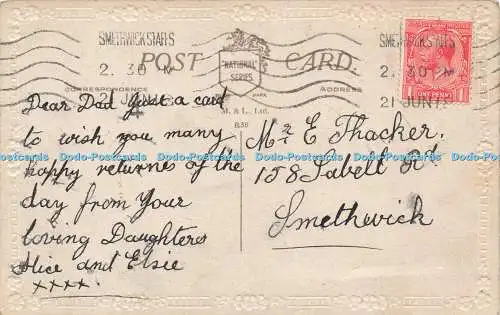 SMETHWICK STAFFS
2. 30 PM
21 JUN 18
POST CARD.
NATIONAL SERIES
CORRESPONDENCE
ADDRESS
M. & L., Ltd.
Dear Dad Just a card
to wish you many
happy returns of the
day from Your
loving Daughters
Alice and Elsie
xxxx.
Mr E Thacker.
158 Sabell Rd.
Smethwick
SMETHWICK STAFFS
2. 30 PM
21 JUN 18
1 ONE PENNY 1
Dodo-Postcards Dodo-Postcards Dodo-Postcards Dodo-Postcards Dodo-Postcards Dodo-Postcards